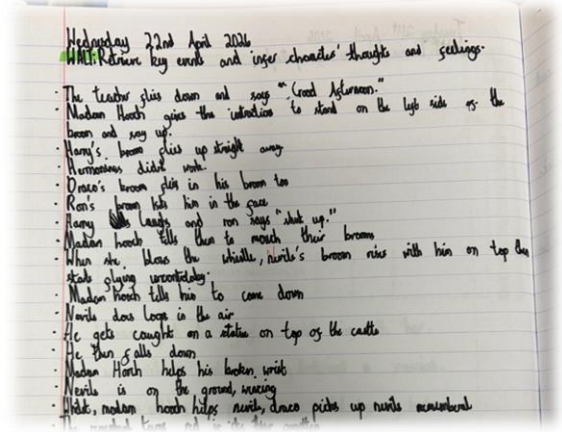 Wednesday 22nd April 2026
WALT: Retrieve key events and infer characters' thoughts and feelings.
· The teacher flies down and says "Good Afternoon."
· Madam Hooch gives the intrustion to stand on the left side of the
broom and say up.
· Harry's broom flies up straight away
· Hermoines didnt work.
· Draco's broom flies in his broom too
· Ron's broom hits him in the face
· Harry laughs and ron says "shut up."
· Madam hooch tells them to mouth their brooms
· When she blows the whistle, nevils's broom rises with him on top then
starts flying uncontrolably.
· Madam hooch tells him to come down
· Nevils does loops in the air
· He gets caught on a statue on top of the castle
· He then falls down
· Madam Hooch helps his broken wrist
· Nevils is on the ground, wincing
· Whilst, madam hooch helps nevils, draco picks up nevils rememberal